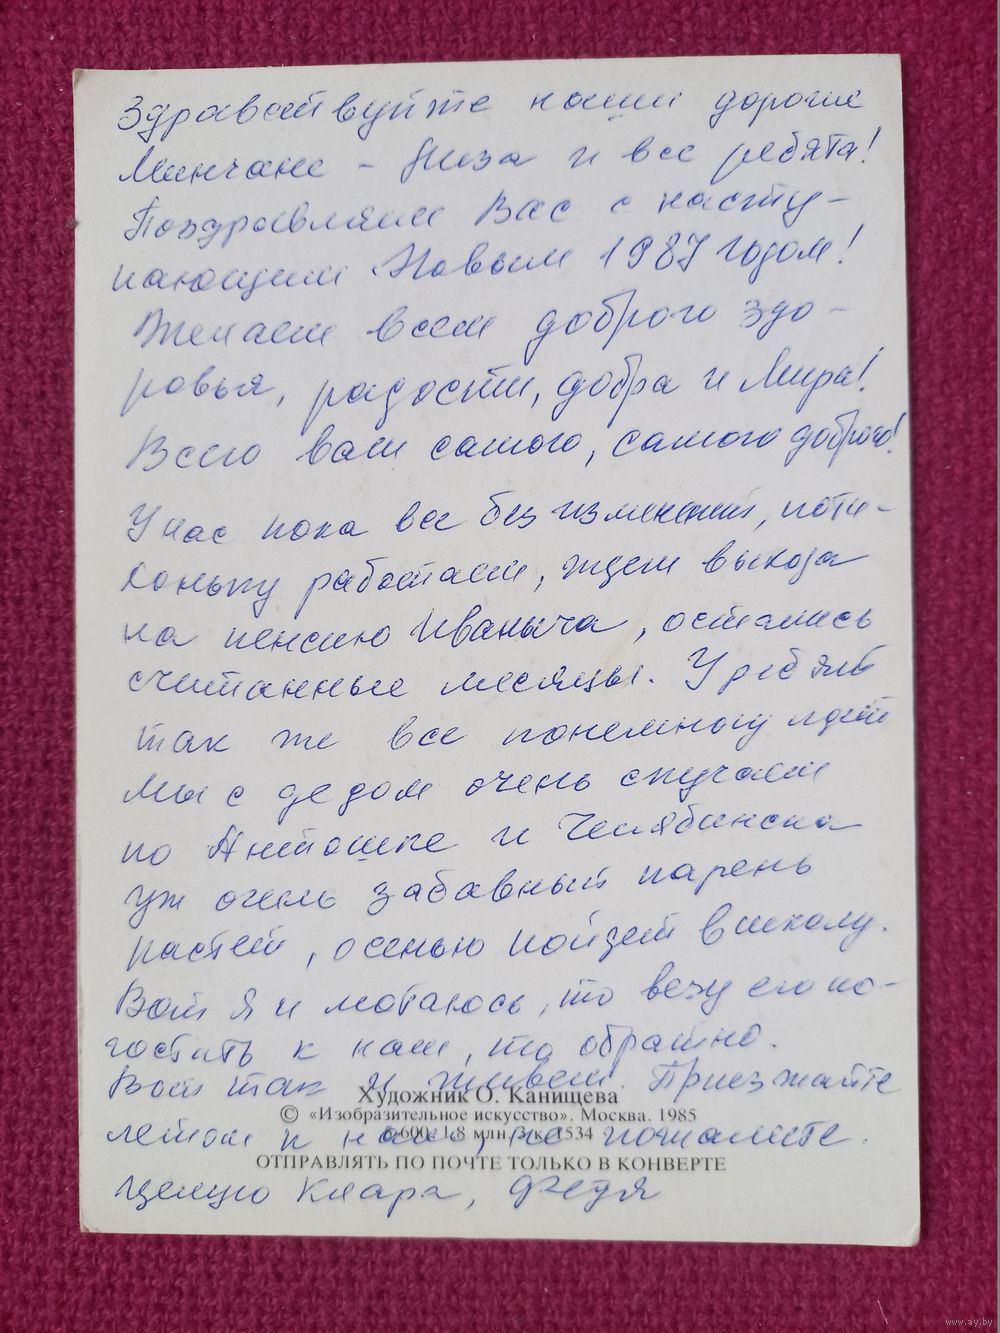 Здравствуйте наши дорогие
Минчане - Лиза и все ребята!
Поздравляем Вас с насту-
пающим Новым 1987 годом!
Желаем всем доброго здо-
ровья, радости, добра и Мира!
Всего вам самого, самого доброго!
У нас пока все без изменений, поти-
хоньку работаем, ждем выхода
на пенсию Иваныча, остались
считанные месяцы. У ребят
так же все понемногу идет
мы с дедом очень скучаем
по Антошке и Челябинска
уж очень забавный парень
растет, осенью пойдет в школу.
Вот я и мотаюсь, то везу его по-
гостить к нам, то обратно.
Вот так и живем. Приезжайте
Художник О. Канищева
© «Изобразительное искусство». Москва. 1985
летом к нам, не пожалеете.
5-600. 1,8 млн. 3 к. 1534
ОТПРАВЛЯТЬ ПО ПОЧТЕ ТОЛЬКО В КОНВЕРТЕ
Целую Клара, Федя
www.ay.by